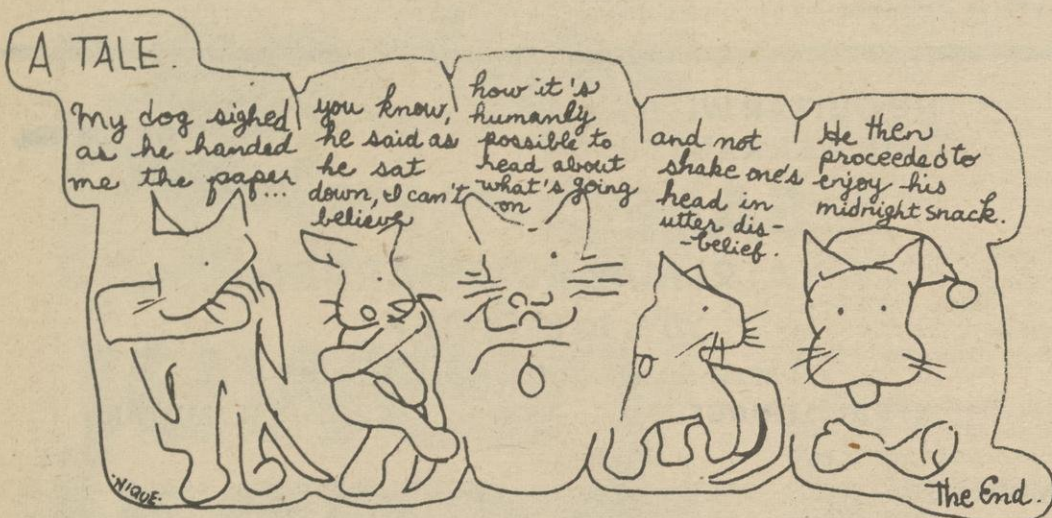 A TALE.
My dog sighed
as he handed
me the paper...
you know,
he said as
he sat
down, I can't
believe
how it's
humanly
possible to
head about
what's going
on
and not
shake one's
head in
utter dis-
-belief.
He then
proceeded to
enjoy his
midnight snack.
·NIQUE·
The End.